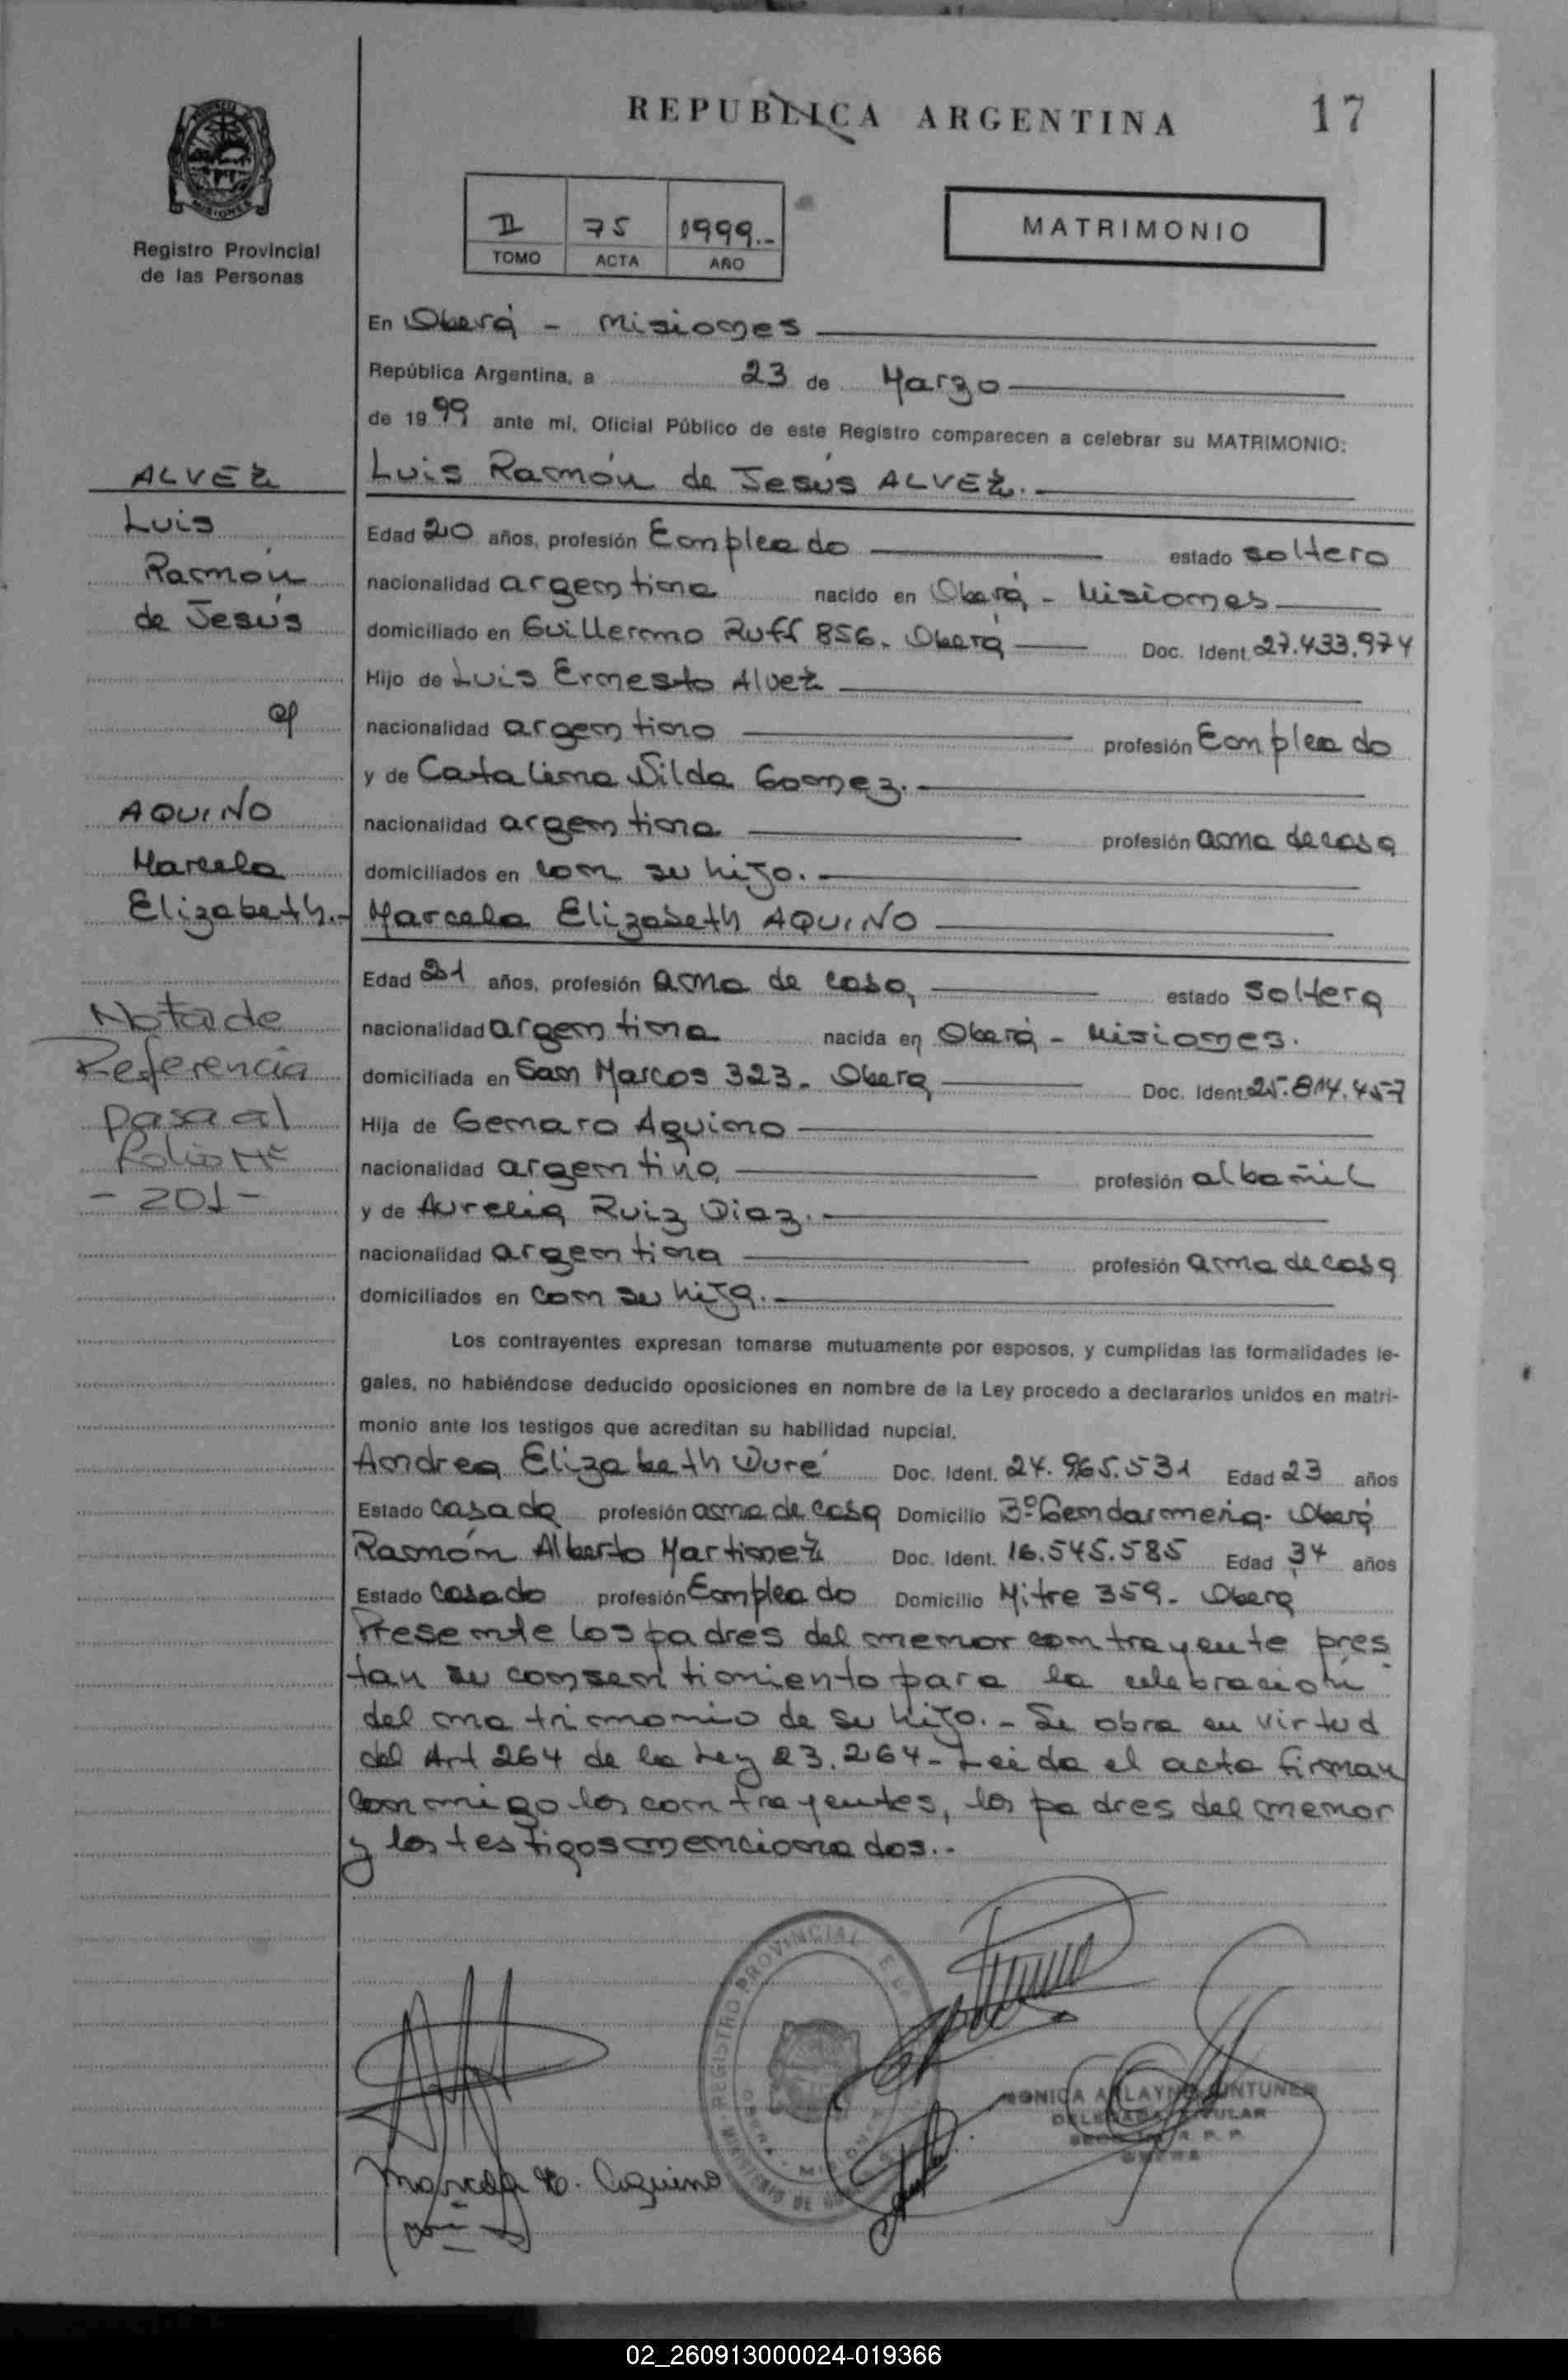 REPUBLICA ARGENTINA
17
MISIONES
Registro Provincial
de las Personas
II 75 1999.-
TOMO ACTA AÑO
MATRIMONIO
En Oberá - Misiones
República Argentina, a 23 de Marzo
de 1999 ante mí, Oficial Público de este Registro comparecen a celebrar su MATRIMONIO:
Luis Ramón de Jesús ALVEZ.
Edad 20 años, profesión Empleado estado soltero
nacionalidad argentina nacido en Oberá - Misiones
domiciliado en Guillermo Ruff 856. Oberá Doc. Ident. 27.433.974
Hijo de Luis Ernesto Alvez
nacionalidad argentino profesión Empleado
y de Catalina Nilda Gomez.
nacionalidad argentina profesión ama de casa
domiciliados en con su hijo.
Marcela Elizabeth AQUINO
Edad 21 años, profesión ama de casa, estado soltera
nacionalidad argentina nacida en Oberá - Misiones.
domiciliada en San Marcos 323. Oberá Doc. Ident. 25.814.457
Hija de Genaro Aquino
nacionalidad argentino profesión albañil
y de Aurelia Ruiz Diaz.
nacionalidad argentina profesión ama de casa
domiciliados en con su hija.
Los contrayentes expresan tomarse mutuamente por esposos, y cumplidas las formalidades le-
gales, no habiéndose deducido oposiciones en nombre de la Ley procedo a declararlos unidos en matri-
monio ante los testigos que acreditan su habilidad nupcial.
Andrea Elizabeth Duré Doc. Ident. 24.965.531 Edad 23 años
Estado casada profesión ama de casa Domicilio Bº Gendarmería. Oberá
Ramón Alberto Martinez Doc. Ident. 16.545.585 Edad 34 años
Estado casado profesión Empleado Domicilio Mitre 359. Oberá
Presente los padres del menor contrayente pres
tan su consentimiento para la celebración
del matrimonio de su hijo.- Se obra en virtud
del Art 264 de la Ley 23.264- Leida el acta firman
conmigo los contrayentes, los padres del menor
y los testigos mencionados.-
ALVEZ
Luis
Ramón
de Jesús
AQUINO
Marcela
Elizabeth.-
Nota de
Referencia
pasa al
Folio Nº
- 201 -
REGISTRO PROVINCIAL
Marcela E. Aquino
MONICA
DELEGADA TITULAR
R. P. P.
02_260913000024-019366